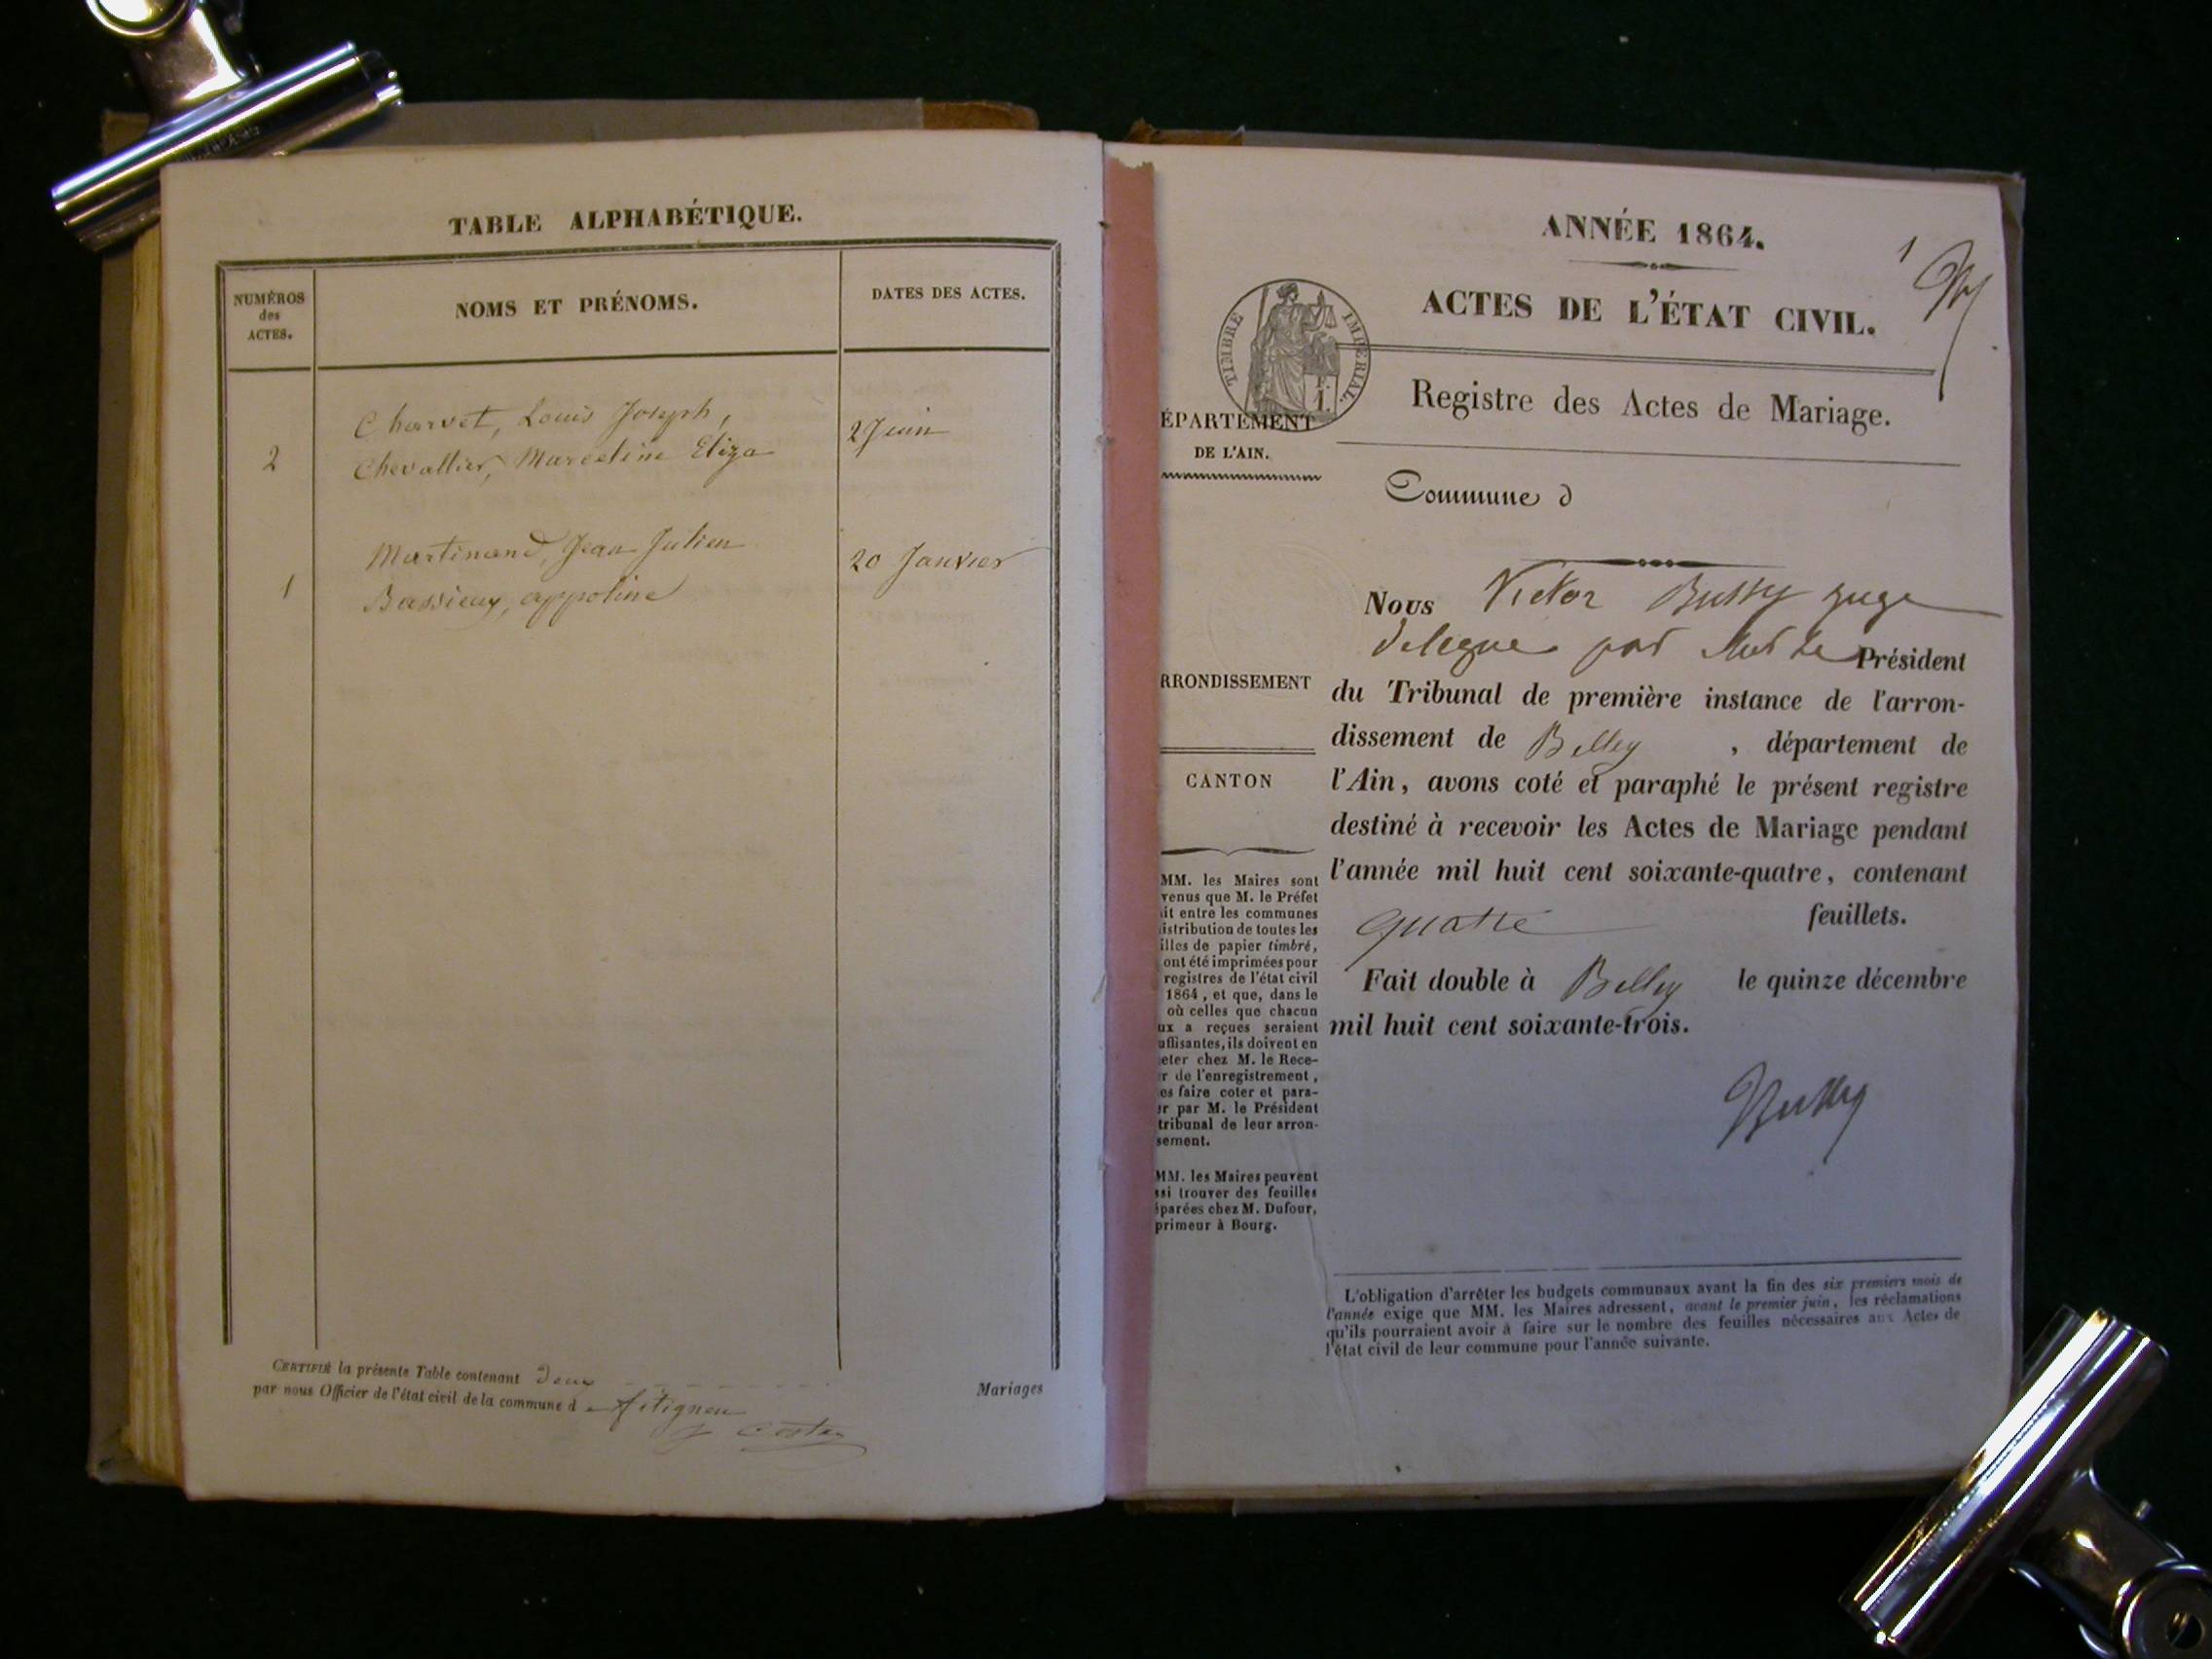 TABLE ALPHABÉTIQUE.
NUMÉROS
des
ACTES.
NOMS ET PRÉNOMS.
DATES DES ACTES.
Charvet, Louis Joseph,
2
Chevallier, Marceline Eliza
2 Juin
Martinand, Jean Julien
1
Bassieux, appoline
20 Janvier
CERTIFIÉ la présente Table contenant deux
Mariages
par nous Officier de l'état civil de la commune d
Costaz
1
ANNÉE 1864.
ACTES DE L'ÉTAT CIVIL.
TIMBRE IMPERIAL.
1 F.
Registre des Actes de Mariage.
ÉPARTEMENT
DE L'AIN.
Commune d
Nous Victor Bussy juge
délégué par Mr le Président
du Tribunal de première instance de l'arron-
dissement de Belley , département de
l'Ain, avons coté et paraphé le présent registre
destiné à recevoir les Actes de Mariage pendant
l'année mil huit cent soixante-quatre, contenant
quatre feuillets.
Fait double à Belley le quinze décembre
mil huit cent soixante-trois.
Bussy
RRONDISSEMENT
CANTON
MM. les Maires sont
venus que M. le Préfet
it entre les communes
istribution de toutes les
illes de papier timbré,
ont été imprimées pour
registres de l'état civil
1864, et que, dans le
où celles que chacun
ux a reçues seraient
uffisantes, ils doivent en
eter chez M. le Rece-
r de l'enregistrement,
es faire coter et para-
er par M. le Président
tribunal de leur arron-
sement.
MM. les Maires peuvent
ssi trouver des feuilles
éparées chez M. Dufour,
primeur à Bourg.
L'obligation d'arrêter les budgets communaux avant la fin des six premiers mois de
l'année exige que MM. les Maires adressent, avant le premier juin, les réclamations
qu'ils pourraient avoir à faire sur le nombre des feuilles nécessaires aux Actes de
l'état civil de leur commune pour l'année suivante.